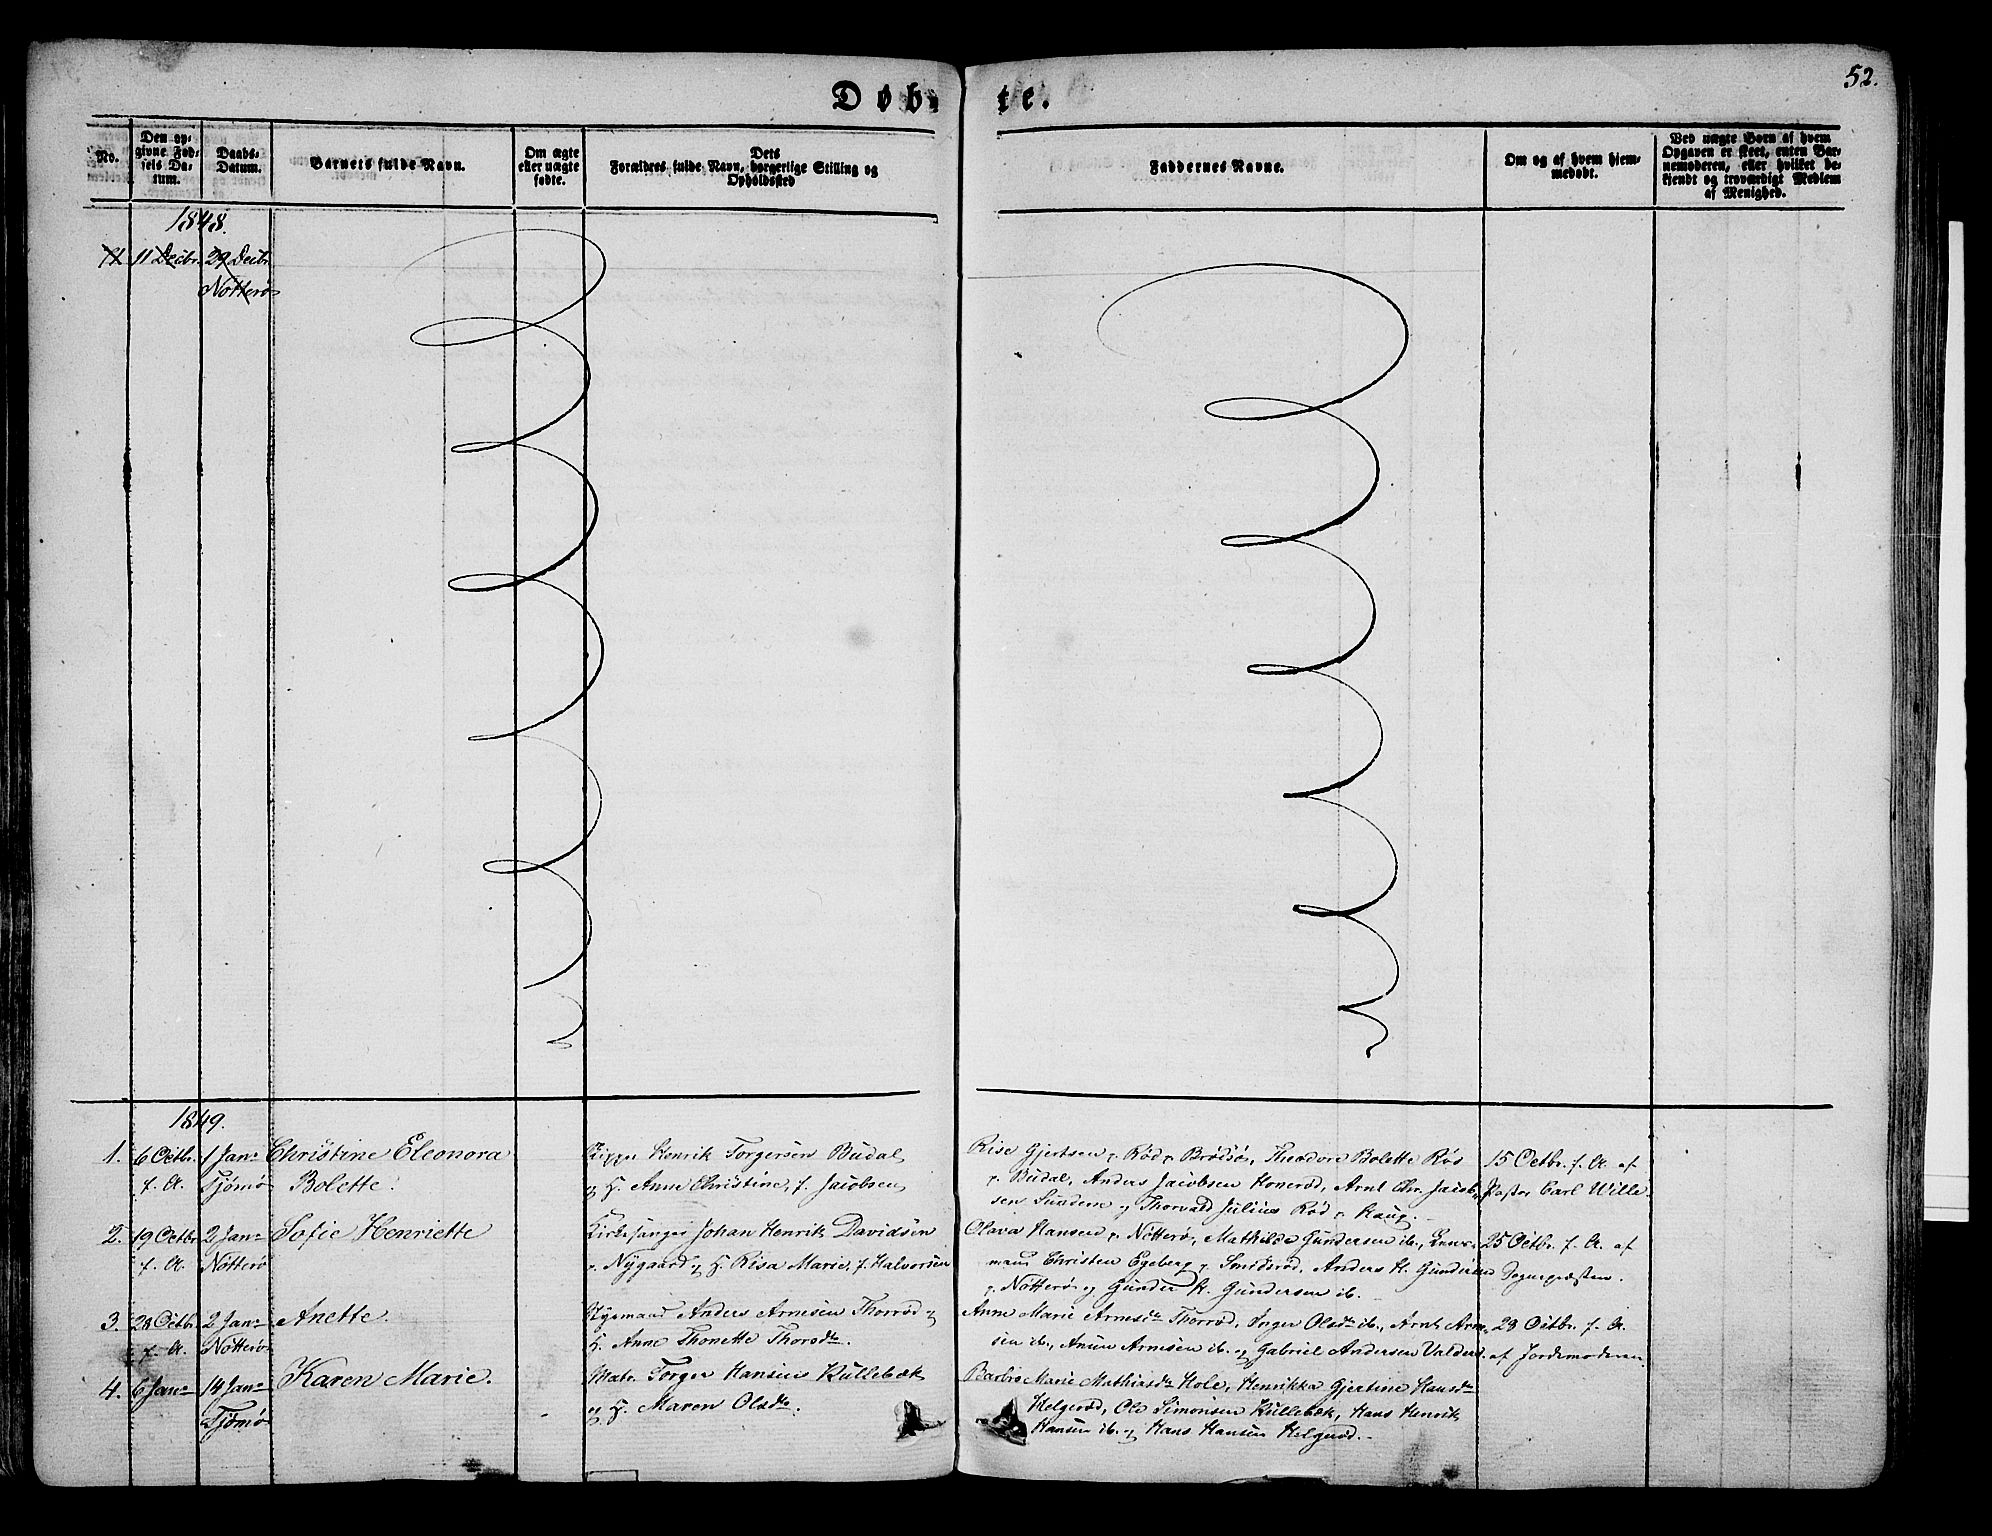 Døb-
te.
52.
No.
Den op-
givne Fød-
sels Da-
tum.
Daabs-
Datum.
Barnets fulde Navn.
Om ægte
eller uægte
født.
Dets
Forældres fulde Navn, borgerlige Stilling og
Opholdssted
Faddernes Navne.
Om og af hvem hjem-
medøbt.
Ved uægte Børn af hvem
Opgaven er skeet, enten Bar-
nemoderen, eller hvilket be-
kjendt og troværdigt Medlem
af Menighed.
1848.
11 Decbr. 29 Decbr.
Nøtterø
1849.
1. 6 Octbr. 1 Jan. Christine Eleonora
f. A. Tjømø Bolette.
Henrik Torgersen Budal
og H. Anne Christine, f. Jacobsen
Gjertsen p. Rød p. Brødsø, Theodore Bolette Rød
p. Budal, Anders Jacobsen Honerød, Arnt Chr. Jacob-
sen Sundene og Thorvald Julius Rød p. Haug.
15 Octbr. f. A. af
Pastor Carl Wille.
2. 19 Octbr. 2 Jan. Sofie Henriette
f. A. Nøtterø
Kirkesanger Johan Henrik Davidsen
p. Nygaard og H. Risa Marie, f. Halvorsen
Olava Hansen p. Nøtterø, Mathilde Gundersen ib.,
Christen Egeberg p. Smidsrød, Anders H. Gundersen
p. Nøtterø og Gunder H. Gundersen ib.
25 Octbr. f. A. af
Sognepræsten.
3. 28 Octbr. 2 Jan. Anette.
f. A. Nøtterø
Anders Arnesen Thorrød og
H. Anne Thonette Thorsdtr.
Anne Marie Arnesdtr Thorrød, Inger Olsdtr ib., Arnt Arne-
sen ib., Arnesen ib. og Gabriel Andersen
28 Octbr. f. A.
af Jordemoderen.
4. 6 Jan. 14 Jan. Karen Marie.
Tjømø
Matr. Torger Hansen Kullebæk
og H. Maren Olsdtr.
Barbro Marie Mathiasdtr Hole, Henrikka Gjertine Hansdtr
Helgerød, Ole Simonsen Kullebæk, Hans Henrik
Hansen ib. og Hans Hansen Helgerød.